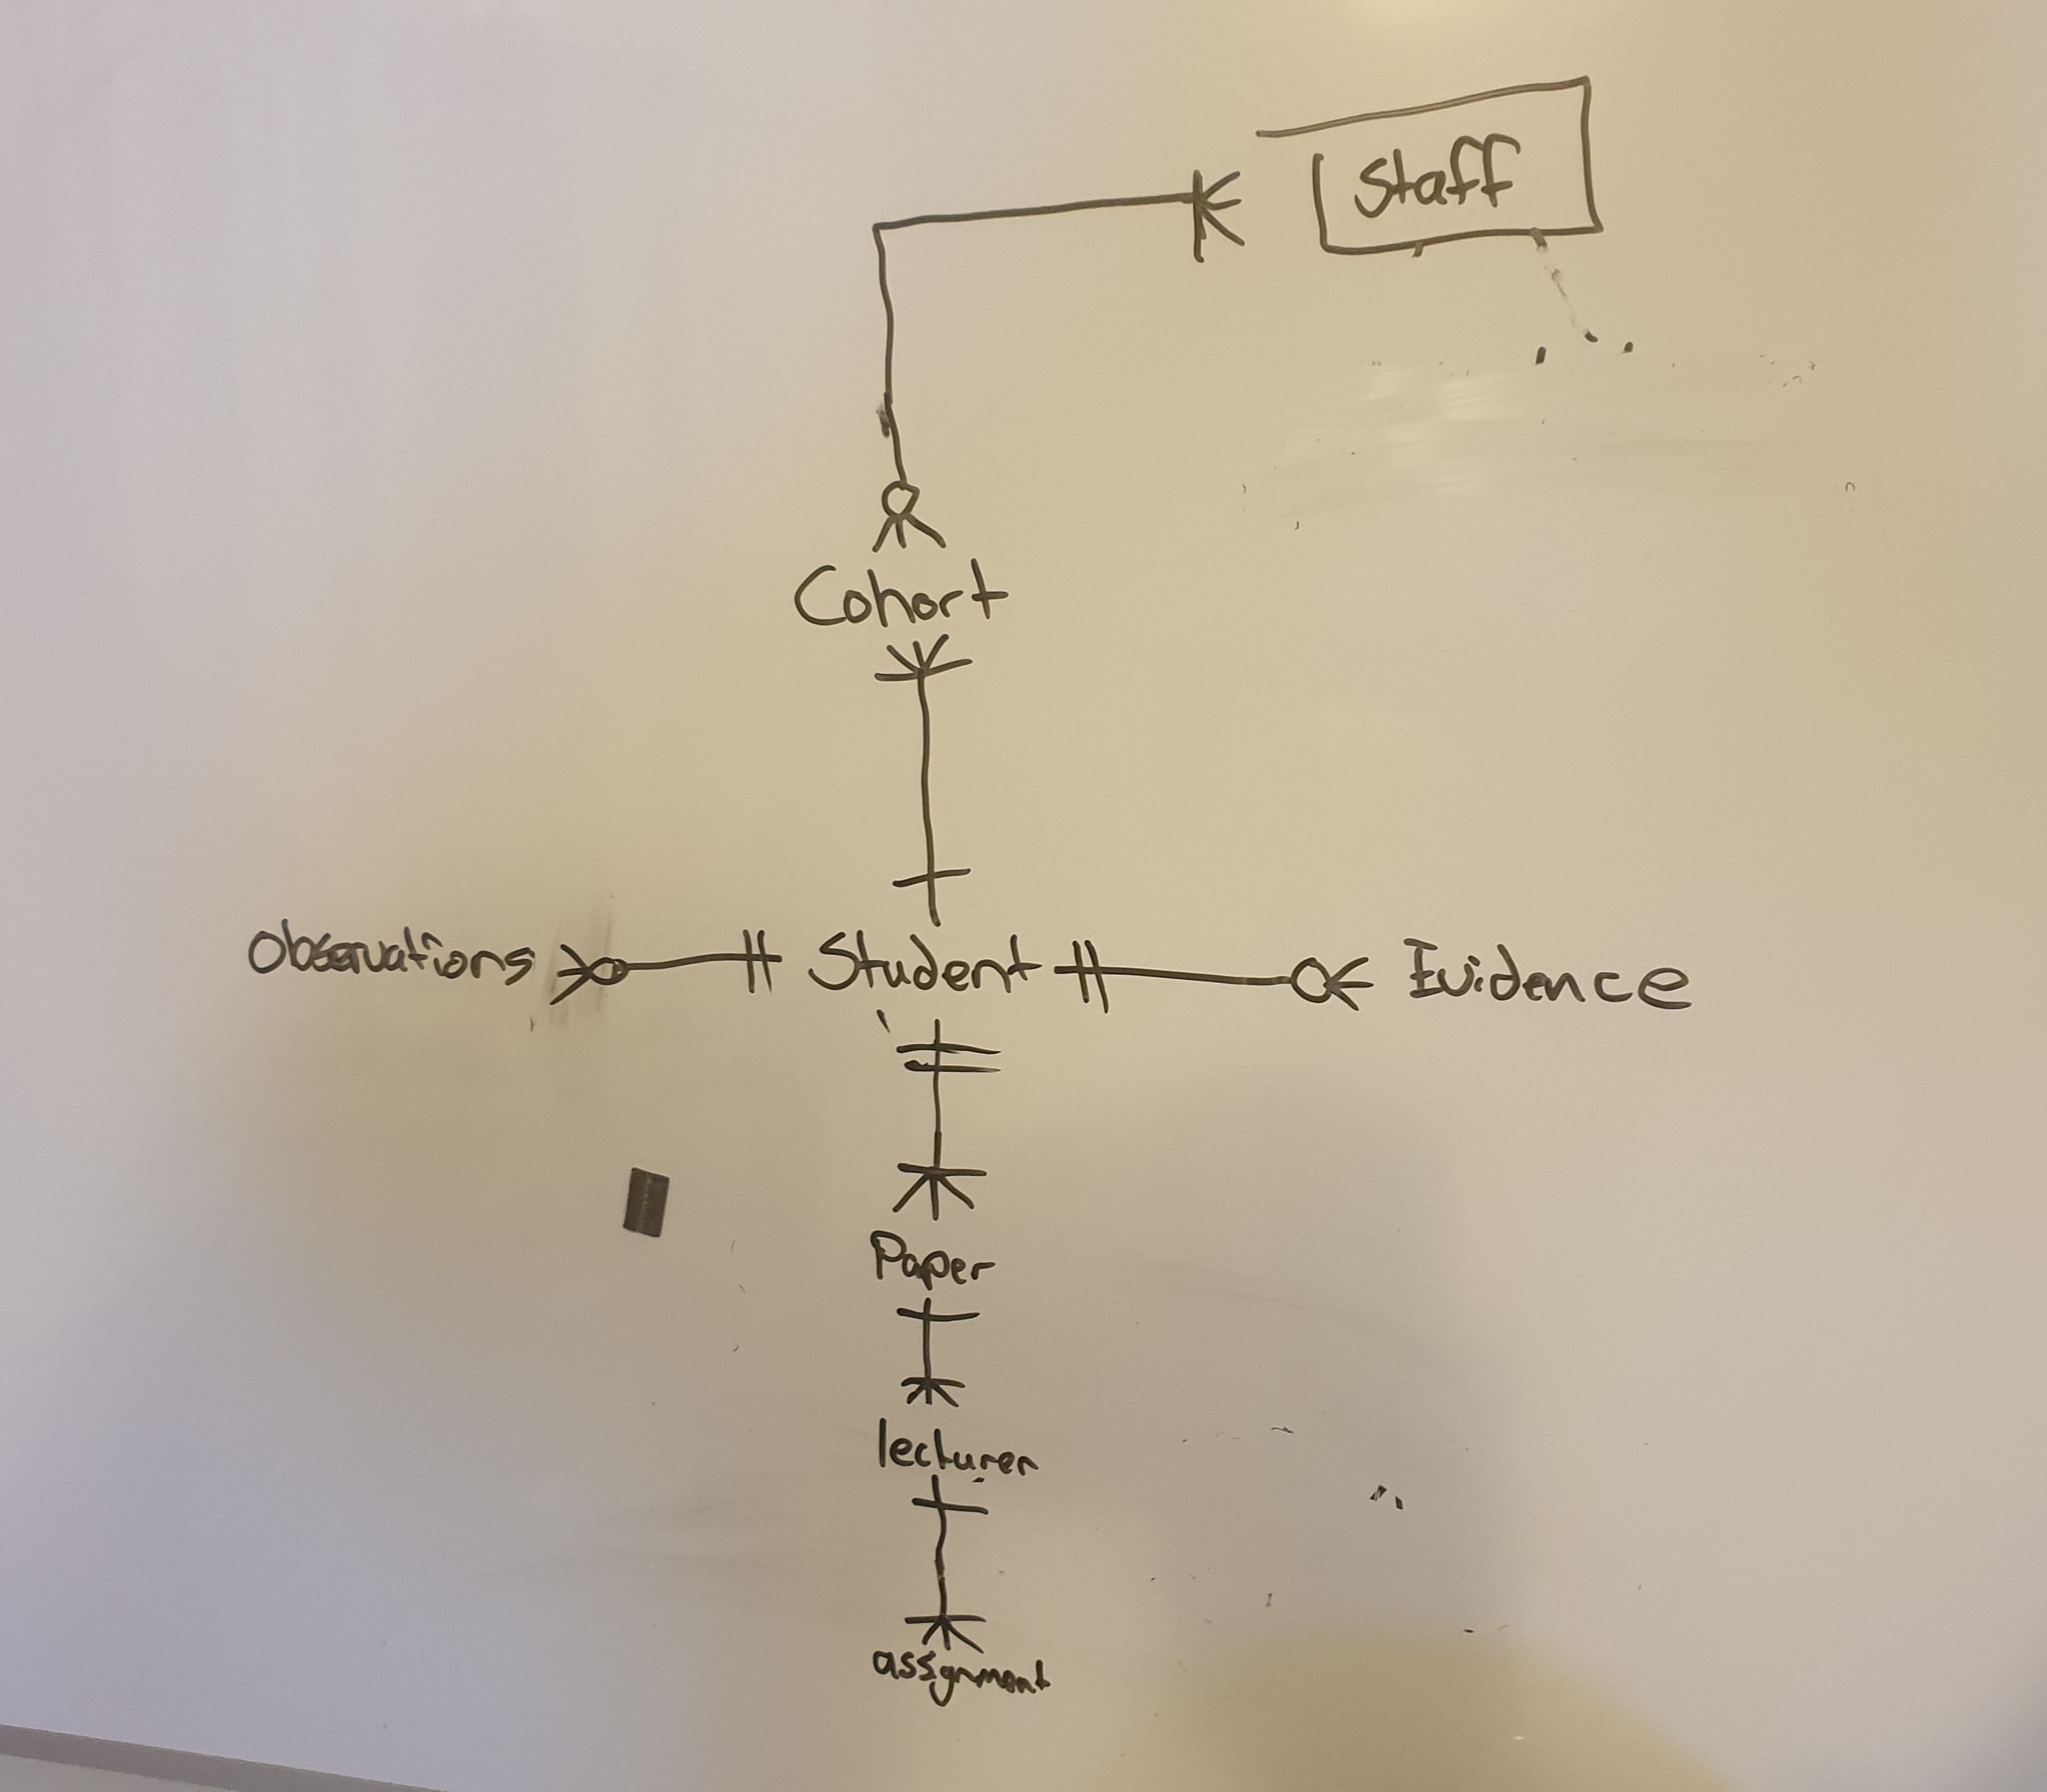 Staff
Cohort
Observations Student Evidence
Paper
lecturer
assgnment